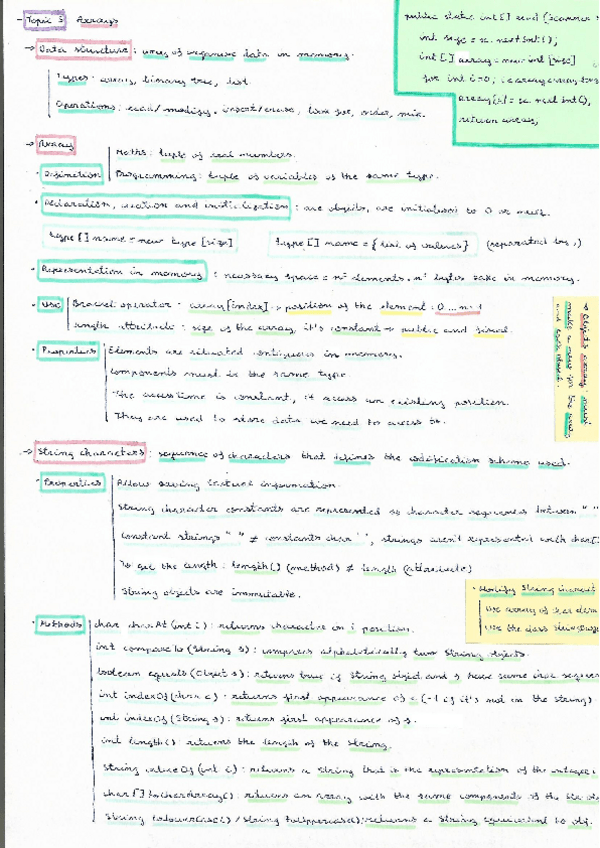 - Topic 5 Arrays
→ Data structure: way of organise data in memory.
Types: array, binary tree, list.
Operations: read/modify, insert/erase, look for, order, mix.
public static int[] read (Scanner
int size = sc.nextInt();
int [] array = new int [size]
for int i=0; i<array.
array[i] = sc.nextInt();
return array;
→ Array
· Definition
Maths: tuple of real numbers.
Programming: tuple of variables of the same type.
· Declaration, creation and initialization: are objects, are initialised to 0 or null.
type [] name = new type [size]
type [] name = {list of values} (separated by ,)
· Representation in memory: necessary space = nº elements · nº bytes take in memory.
· Use
Bracket operator - array[index] → position of the element: 0 ... n-1
length attribute: size of the array, it's constant → public and final.
→ Objects array: must
create a new for the array
and each object.
· Properties
Elements are situated contiguous in memory.
Components must be the same type.
The access time is constant, if access an existing position.
They are used to store data we need to access to.
→ String characters: sequence of characters that defines the codification scheme used.
· Properties
Allow saving texture information.
String character constants are represented as character sequences between " "
Constant strings " " ≠ constants char ' ', strings aren't represented with char[]
To get the length: length() (method) ≠ length (attribute)
String objects are immutable.
· Modify String
Use array of char
Use the class
· Methods
char charAt (int i): returns character on i position.
int compareTo (String s): compares alphabetically two String objects.
boolean equals (Object s): returns true if String object and s have same
int indexOf (char c): returns first appearance of c (-1 if it's not on the string)
int indexOf (String s): returns first appearance of s.
int length(): returns the length of the String.
String valueOf (int i): returns a String that is the representation of the integer
char [] toCharArray(): returns an array with the same components of the
String toLowerCase() / String toUpperCase(): returns a String equivalent to obj.